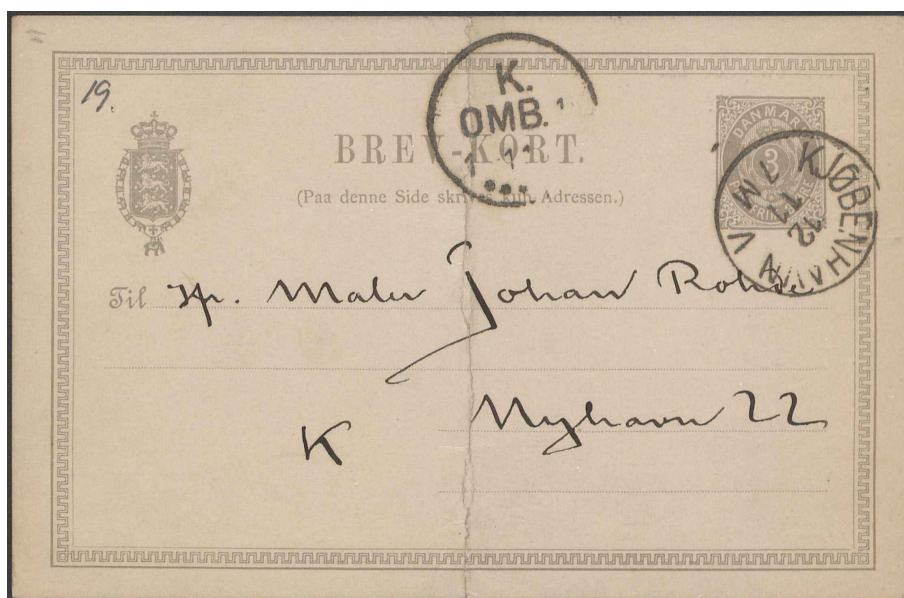 19.
K.
OMB. 1
BREV-KORT.
(Paa denne Side skrives kun Adressen.)
DANMARK
3
KJØBENHAVN V
12
12
7 M
Til Hr. Maler Johan Rohde
Nyhavn 22
K